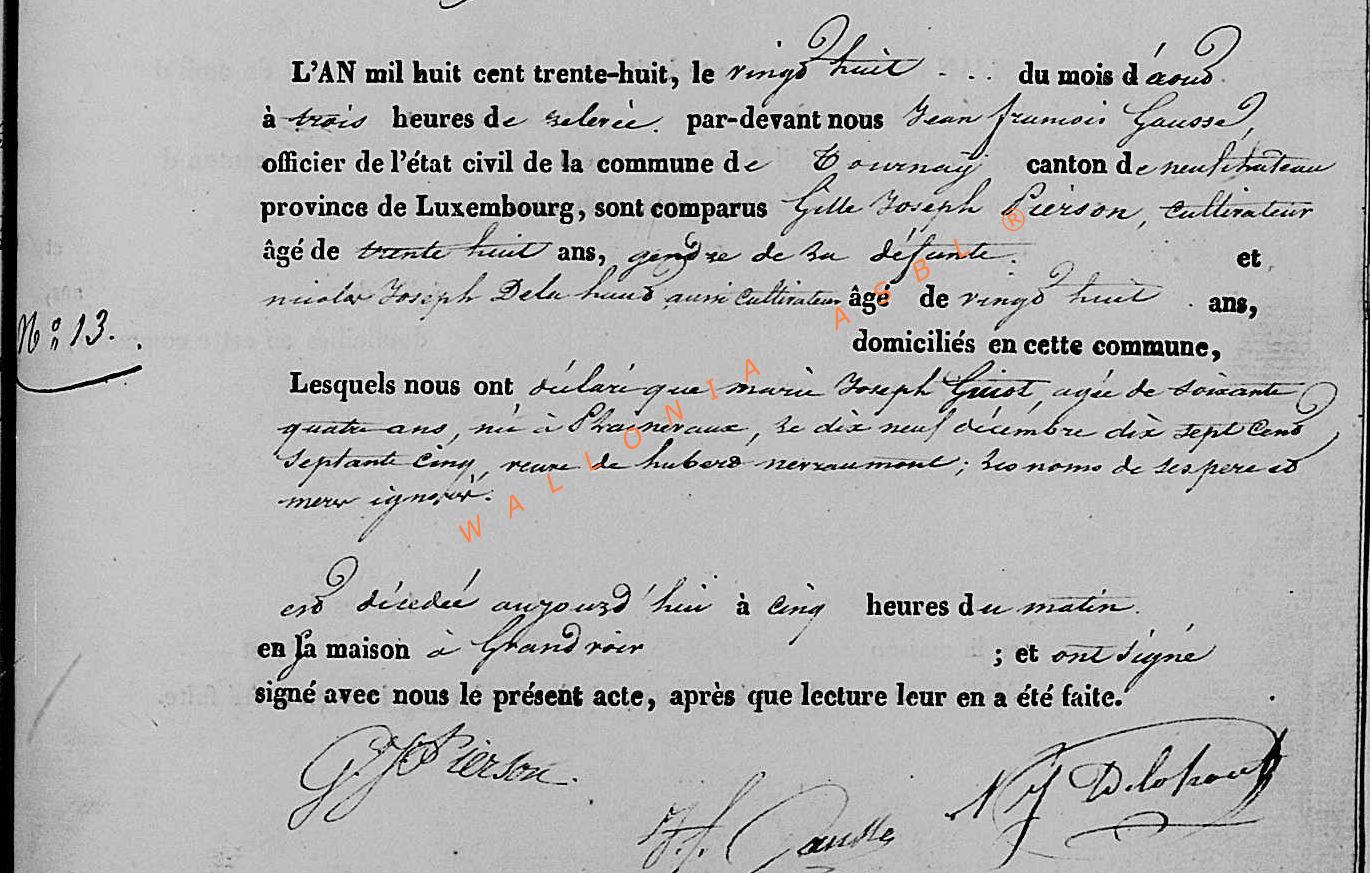 L'AN mil huit cent trente-huit, le vingt huit ... du mois d'aout
à trois heures de relevée. par-devant nous Jean françois Gausse,
officier de l'état civil de la commune de Tournay canton de neufchateau
province de Luxembourg, sont comparus Gille Joseph Pierson, cultivateur
âgé de trente huit ans, gendre de la défunte. et
nicolas Joseph Delahaut aussi cultivateur âgé de vingt huit ans,
N° 13.
domiciliés en cette commune,
Lesquels nous ont déclaré que marie Joseph Guiot, agée de soixante
quatre ans, née à , le dix neuf décembre dix sept cent
septante cinq, veuve de hubert nerraumont; les noms de ses pere et
mere ignoré.
est décedée aujourd'hui à cinq heures du matin.
en sa maison à Grandvoir ; et ont signé
signé avec nous le présent acte, après que lecture leur en a été faite.
G J Pierson.
J. f. Gausse
N J Delahaut
WALLONIA ASBL ®